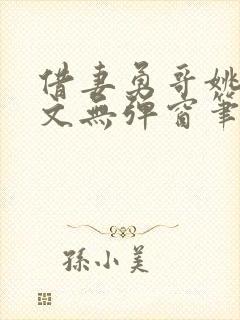 借妻勇哥姚
文無彈窗筆
孫小美